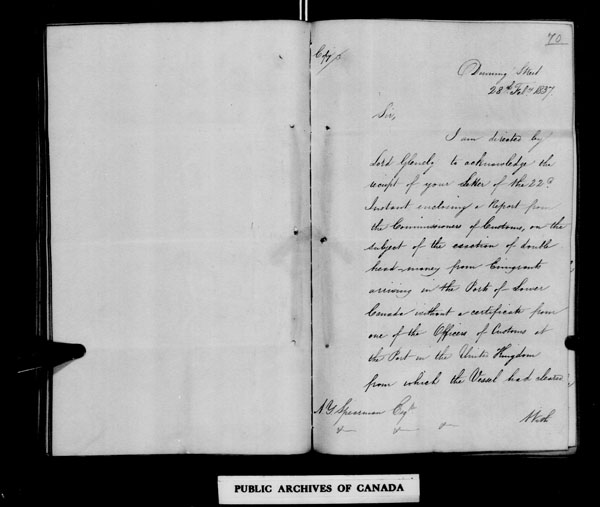 70
Copy
Downing Street
28th Feby 1837.
Sir,
I am directed by
Lord Glenelg to acknowledge the
receipt of your Letter of the 22d
Instant enclosing a Report from
the Commissioners of Customs, on the
subject of the exaction of double
head-money from Emigrants
arriving in the Ports of Lower
Canada without a certificate from
one of the Officers of Customs at
the Port in the United Kingdom
from which the Vessel had cleared
A. Y. Spearman Esqr
With
PUBLIC ARCHIVES OF CANADA